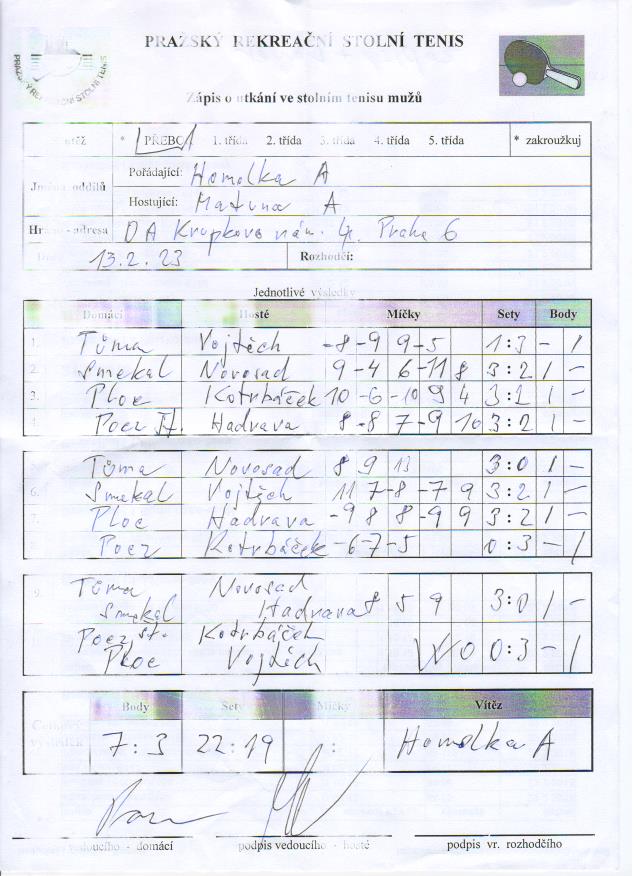 PRAŽSKÝ REKREAČNÍ STOLNÍ TENIS
PRAŽSKÝ REKREAČNÍ STOLNÍ TENIS
Zápis o utkání ve stolním tenisu mužů
* PŘEBOR 1. třída 2. třída 3. třída 4. třída 5. třída * zakroužkuj
Jména oddílů
Pořádající: Homolka A
Hostující: Matuna A
Hrací - adresa DA Krupkovo nám. 4, Praha 6
13.2.23 Rozhodčí:
Jednotlivé výsledky
Domácí Hosté Míčky Sety Body
1. Tůma Vojtěch -8 -9 9 -5 1:3 - 1
2. Smekal Novosad 9 -4 6 -11 8 3:2 1 -
3. Ploc Kotrbáček 10 -6 -10 9 4 3:2 1 -
Pocz st. Hadrava 8 -8 7 -9 10 3:2 1 -
5. Tůma Novosad 8 9 13 3:0 1 -
6. Smekal Vojtěch 11 7 -8 -7 9 3:2 1 -
7. Ploc Hadrava -9 8 8 -9 9 3:2 1 -
Pocz Kotrbáček -6 -7 -5 0:3 - 1
9. Tůma Novosad
Smekal Hadrava 8 5 9 3:0 1 -
Pocz st. Kotrbáček
Ploc Vojtěch WO 0:3 - 1
Body Sety Míčky Vítěz
7:3 22:19 : Homolka A
vedoucího - domácí podpis vedoucího - hosté podpis vr. rozhodčího